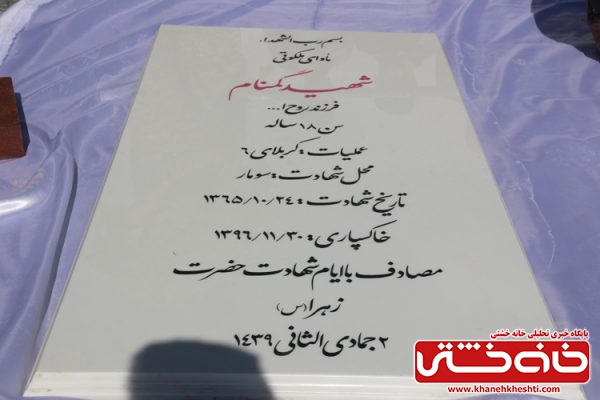 بسم رب الشهداء
ماوای ملکوتی
شهید گمنام
فرزند روح ا...
سن ۱۸ ساله
عملیات : کربلای ۶
محل شهادت : سومار
تاریخ شهادت : ۱۳۶۵/۱۰/۲۴
خاکسپاری : ۱۳۹۶/۱۱/۳۰
مصادف با ایام شهادت حضرت
زهرا (س)
۲ جمادی الثانی ۱۴۳۹
پایگاه خبری تحلیلی خانه خشتی
خانه خشتی
www.khanehkheshti.com